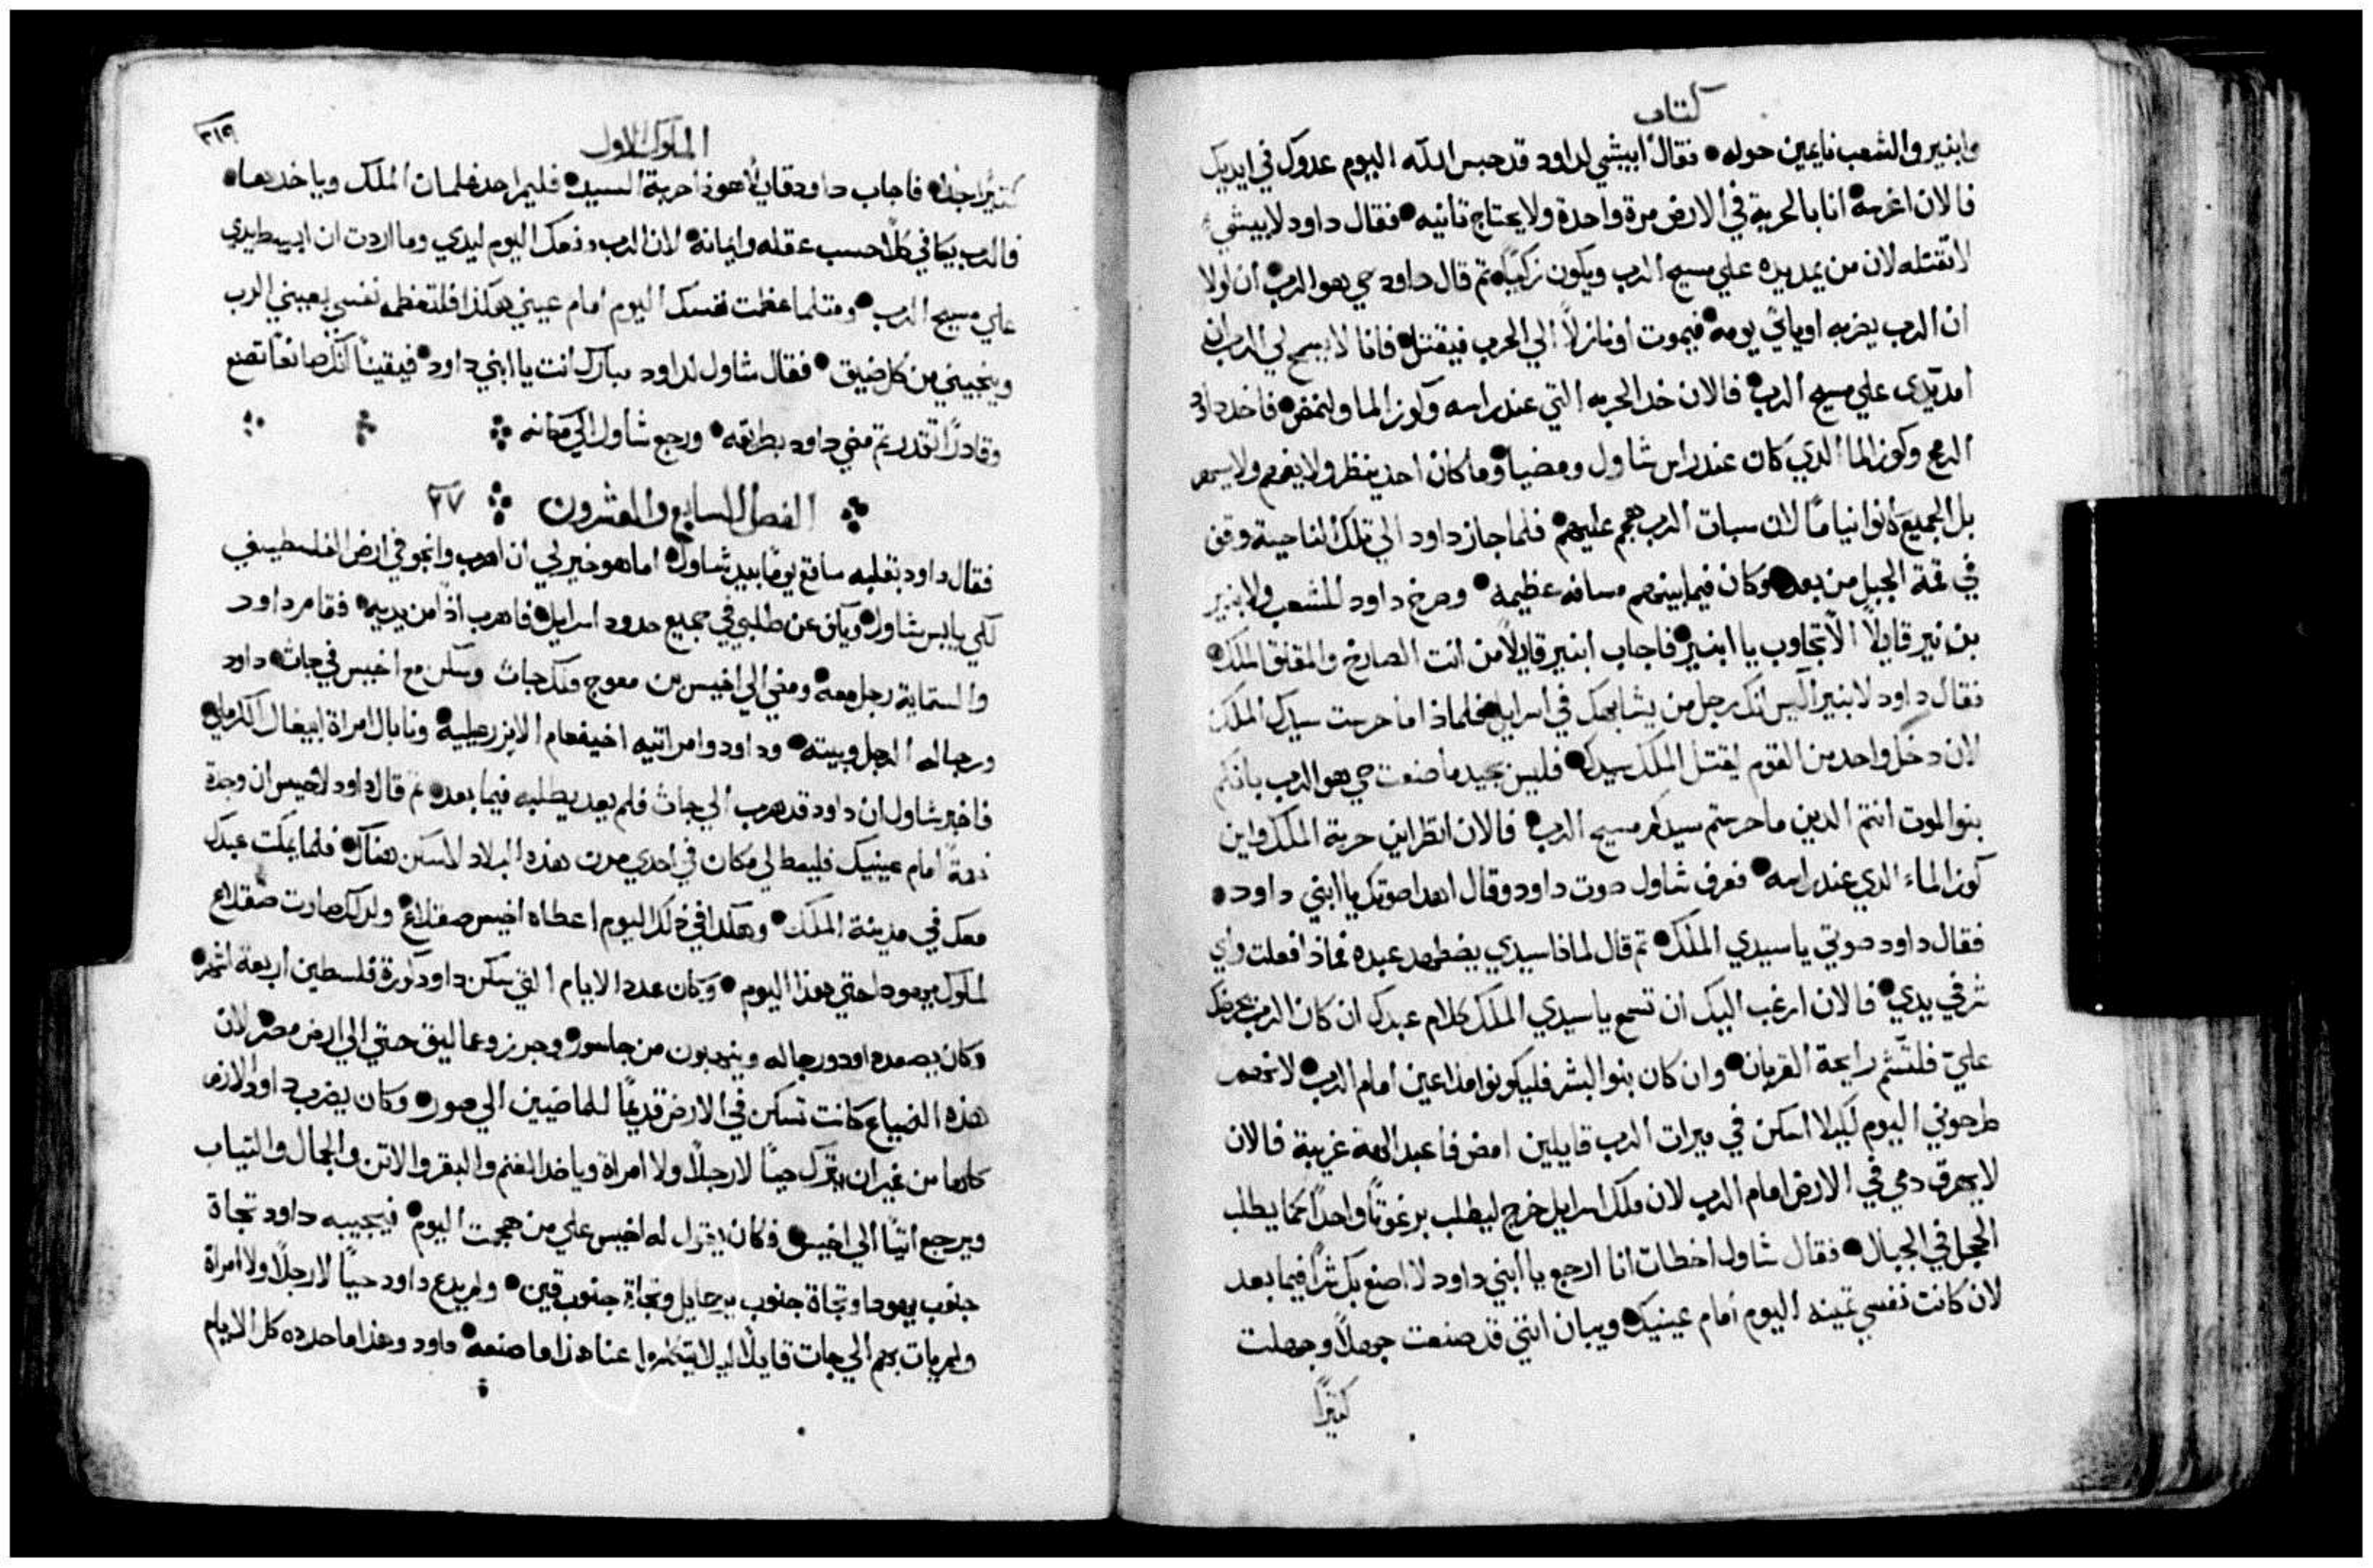 كتاب
وابنير والشعب نايمين حوله • فقال ابيشي لداود قد حبس الله اليوم عدوك في ايديك
فالان اغرسه انا بالحربة في الارض مرة واحدة ولا يحتاج تانيه • فقال داود لابيشي
لا تقتله لان من يمد يده علي مسيح الرب ويكون زكيًا • تم قال داود حي هو الرب ان لولا
ان الرب يضربه او ياتي يومه فيموت او نازلاً الي الحرب فيقتل • فانا لا يسمح لي الرب ان
امد يدي علي مسيح الرب • فالان خد الحربه التي عند راسه وكوز الما ولنمض • فاخد داود
الرمح وكوز الما الدي كان عند راس شاول ومضيا • وما كان احد ينظر ولا يفهم ولا يسهر
بل الجميع كانوا نيامًا لان سبات الرب هجم عليهم • فلما جاز داود الي تلك الناحية وقف
في قمة الجبل من بعد • وكان فيما بينهم مسافه عظيمه • وصرخ داود للشعب ولابنير
بن نير قايلاً الا تجاوب يا ابنير • فاجاب ابنير قايلاً من انت الصارخ والمقلق الملك •
فقال داود لابنير اليس انك رجل من يشابهك في اسرايل • فلماذا ما حرست سيدك الملك
لان دخل واحد من القوم ليقتل الملك سيدك • فليس بجيد ما صنعت حي هو الرب بانكم
بنو الموت انتم الدين ما حرستم سيدكم مسيح الرب • فالان انظر اين حربة الملك واين
كوز الماء الدي عند راسه • فعرف شاول صوت داود وقال اهدا صوتك يا ابني داود •
فقال داود صوتي يا سيدي الملك • تم قال لماذا سيدي يضطهد عبده فماذا فعلت واي
شر في يدي • فالان ارغب اليك ان تسمع يا سيدي الملك كلام عبدك ان كان الرب يحرضك
عليّ فلتشتم رايحة القربان • وان كان بنو البشر فليكونوا ملاعين امام الرب •
طرحوني اليوم ليلا اسكن في ميرات الرب قايلين امض فاعبد الهة غريبة فالان
لا يهرق دمي في الارض امام الرب لان ملك اسرايل خرج ليطلب برغوتًا واحدًا كما يطلب
الحجل في الجبال • فقال شاول اخطات انا ارجع يا ابني داود لا اصنع بك شرًا فيما بعد
لان كانت نفسي تمينه اليوم امام عينيك • ويبان انني قد صنعت جهلاً وجهلت
كتيرًا
الملوك الاول
٣١٩
كتيرًا جدًا • فاجاب داود قايلاً هوذا حربة السيد • فليمر احد غلمان الملك وياخدها •
فالرب يكافي كلاً حسب عقله وايمانه • لان الرب دفعك اليوم ليدي وما اردت ان ابسط يدي
علي مسيح الرب • ومتلما عظمت نفسك اليوم امام عيني هكذا فلتعظم نفسي بعيني الرب
وينجيني من كل ضيق • فقال شاول لداود مبارك انت يا ابني داود • فيقينًا انك صانعًا تصنع
وقادرًا تقدر تم مضي داود بطريقه • ورجع شاول الي مكانه
الفصل السابع والعشرون ٢٧
فقال داود بقلبه ساقع يومًا بيد شاول • اما هو خير لي ان اهرب وانجو في ارض الفلسطينيين
لكي يايس شاول • ويكف عن طلبي في جميع حدود اسرايل • فاهرب اذًا من يديه • فقام داود
والستماية رجل معه • ومضي الي اخيس بن معوج ملك جات وسكن مع اخيس في جات • داود
ورجاله الرجل وبيته • وداود وامراتيه اخينعام الايزرعلية • ونابال امراة ابيغال الكرملي •
فاخبر شاول ان داود قد هرب الي جات فلم يعد يطلبه فيما بعد • تم قال داود لاخيس ان وجدة
نعمةً امام عينيك فليعط لي مكان في احدي مدن هذه البلاد لاسكن هناك • فلما يمكت عبدك
معك في مدينة الملك • وهكدا في ذلك اليوم اعطاه اخيس صقلاغ • ولدلك صارت صقلاغ
لملوك يهودا حتي هذا اليوم • وكان عدد الايام التي سكن داود كورة فلسطين اربعة اشهر •
وكان يصعد داود ورجاله وينهبون من جاسور • وجرز وعماليق حتي الي ارض مصر • لان
هذه الضياع كانت تسكن في الارض قديمًا للماضيين الي صور • وكان يضرب داود الارض
كلها من غير ان يترك حيًا لا رجلاً ولا امراة وياخد الغنم والبقر والاتن والجمال والتياب
ويرجع اتيًا الي اخيس • فكان يقول له اخيس علي من هجمت اليوم • فيجيبه داود تجاة
جنوب يهودا وتجاة جنوب يرحمايل وتجاة جنوب قين • ولم يدع داود حيًا لا رجلاً ولا امراة
ولم يات بهم الي جات قايلاً ليلا يتكلموا عنا هذا ما صنعه • داود وهذا ما حدده كل الايام